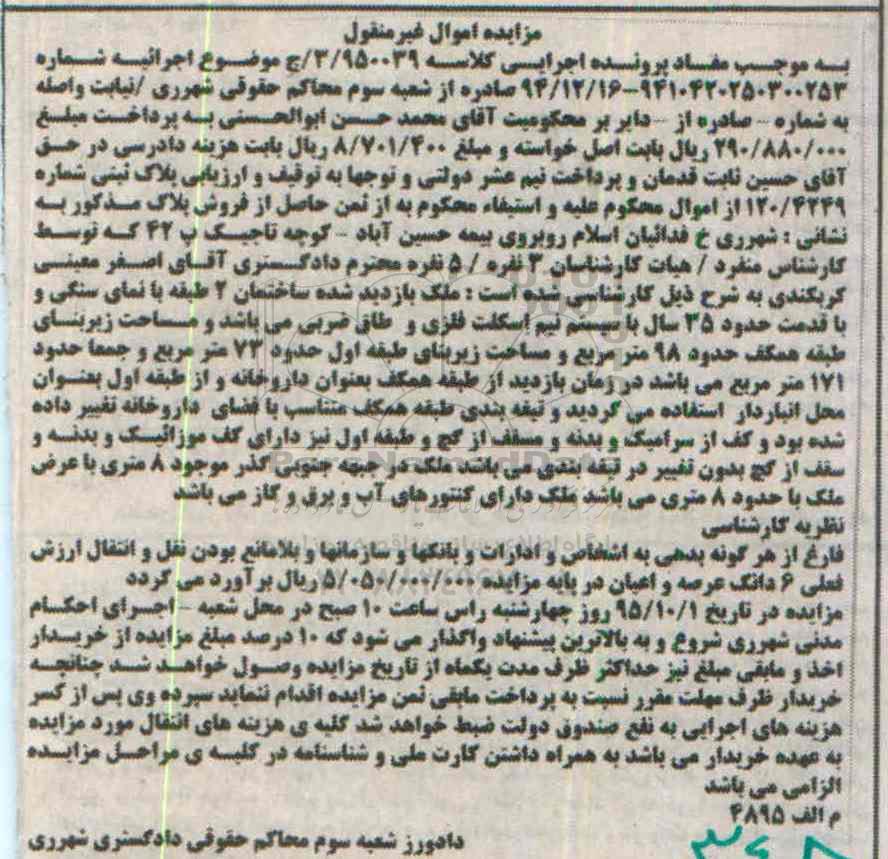 مزایده اموال غیرمنقول
به موجب مفاد پرونده اجرایی کلاسه ۳/۹۵۰۰۳۹/ج موضوع اجرائیه شماره
۹۴۱۰۴۲۰۲۵۰۳۰۰۲۵۳-۹۴/۱۲/۱۶ صادره از شعبه سوم محاکم حقوقی شهرری /نیابت واصله
به شماره – صادره از – دایر بر محکومیت آقای محمد حسن ابوالحسنی به پرداخت مبلغ
۲۹۰/۸۸۰/۰۰۰ ریال بابت اصل خواسته و مبلغ ۸/۷۰۱/۴۰۰ ریال بابت هزینه دادرسی در حق
آقای حسین ثابت قدمان و پرداخت نیم عشر دولتی و توجها به توقیف و ارزیابی پلاک ثبتی شماره
۱۲۰/۴۲۴۹ از اموال محکوم علیه و استیفاء محکوم به از ثمن حاصل از فروش پلاک مذکور به
نشانی : شهرری خ فدائیان اسلام روبروی بیمه حسین آباد – کوچه تاجیک پ ۴۲ که توسط
کارشناس منفرد / هیات کارشناسان ۳ نفره / ۵ نفره محترم دادگستری آقای اصغر معینی
کربکندی به شرح ذیل کارشناسی شده است : ملک بازدید شده ساختمان ۲ طبقه با نمای سنگی و
با قدمت حدود ۳۵ سال با سیستم نیم اسکلت فلزی و طاق ضربی می باشد و مساحت زیربنای
طبقه همکف حدود ۹۸ متر مربع و مساحت زیربنای طبقه اول حدود ۷۳ متر مربع و جمعا حدود
۱۷۱ متر مربع می باشد در زمان بازدید از طبقه همکف بعنوان داروخانه و از طبقه اول بعنوان
محل انباردار استفاده می گردید و تیغه بندی طبقه همکف متناسب با فضای داروخانه تغییر داده
شده بود و کف از سرامیک و بدنه و مسقف از گچ و طبقه اول نیز دارای کف موزائیک و بدنه و
سقف از گچ بدون تغییر در تیغه بندی می باشد ملک در جبهه جنوبی گذر موجود ۸ متری با عرض
ملک با حدود ۸ متری می باشد ملک دارای کنتورهای آب و برق و گاز می باشد
نظریه کارشناسی
فارغ از هر گونه بدهی به اشخاص و ادارات و بانکها و سازمانها و بلامانع بودن نقل و انتقال ارزش
فعلی ۶ دانگ عرصه و اعیان در پایه مزایده ۵/۰۵۰/۰۰۰/۰۰۰ ریال برآورد می گردد
مزایده در تاریخ ۹۵/۱۰/۱ روز چهارشنبه راس ساعت ۱۰ صبح در محل شعبه – اجرای احکام
مدنی شهرری شروع و به بالاترین پیشنهاد واگذار می شود که ۱۰ درصد مبلغ مزایده از خریدار
اخذ و مابقی مبلغ نیز حداکثر ظرف مدت یکماه از تاریخ مزایده وصول خواهد شد چنانچه
خریدار ظرف مهلت مقرر نسبت به پرداخت مابقی ثمن مزایده اقدام ننماید سپرده وی پس از کسر
هزینه های اجرایی به نفع صندوق دولت ضبط خواهد شد کلیه ی هزینه های انتقال مورد مزایده
به عهده خریدار می باشد به همراه داشتن کارت ملی و شناسنامه در کلیه ی مراحل مزایده
الزامی می باشد
م الف ۴۸۹۵
دادورز شعبه سوم محاکم حقوقی دادگستری شهرری